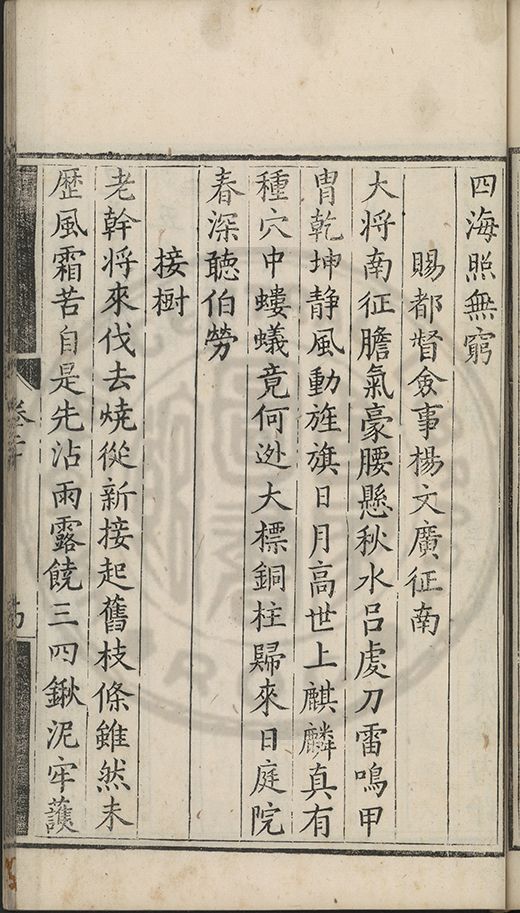 四海照無窮
賜都督僉事楊文廣征南
大将南征膽氣豪腰懸秋水吕䖏刀雷鳴甲
胄乾坤静風動旌旗日月高世上麒麟真有
種穴中螻蟻竟何迯大標銅柱歸來日庭院
春深聽伯勞
接樹
老幹将來伐去燒從新接起舊枝條雖然未
歴風霜苦自是先沾雨露饒三四鍬泥牢護